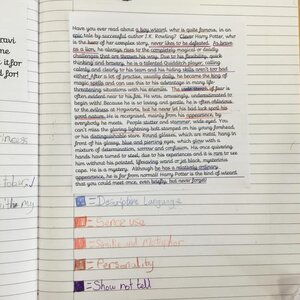 Have you ever read about a boy wizard, who is quite famous, in an
epic tale by successful author J.K. Rowling? Clever Harry Potter, who
is the hero of her complex story, never likes to be defeated. As brave
as a lion, he always rises to the completely magical or deadly
challenges that are thrown his way. Due to his flexibility, quick
thinking and bravery, he is a talented Quidditch player,
calmly and clearly to his team and his flying skills aren't too bad
either! After a lot of practise, usually daily, he became the king of
magic spells and can use this to his advantage in many life-
threatening situations with his enemies. The
often evident near to him for. He was, unsurprisingly, understanded to
begin with! Because he is so loving and gentle, he is often oblivious
to the evilness at Hogwarts, but he never let his bad luck spoil his
good nature. He is recognised, mainly from his appearance, by
everybody he meets. People stutter and stammer, wide eyed. You
can't miss the glaring lightning bolt stamped on his young forehead,
or his distinguishable stare. Round glasses, which are metal, hang in
front of his glassy, blue and piercing eyes, which glow with a
mixture of determination, sorrow and confusion. His once quivering
hands have turned to steel, due to his experiences and it is rare to see
him without his pointed, lifesaving wand or jet black, mysterious
cape. He is a mystery. Although he has a relatively ordinary
appearance, he is far from normal! Harry Potter is the kind of wizard
that you could meet once, even briefly, but never forget!
= Descriptive Language
= Sense use
= Simile and metaphor
= Personality
= Show not tell